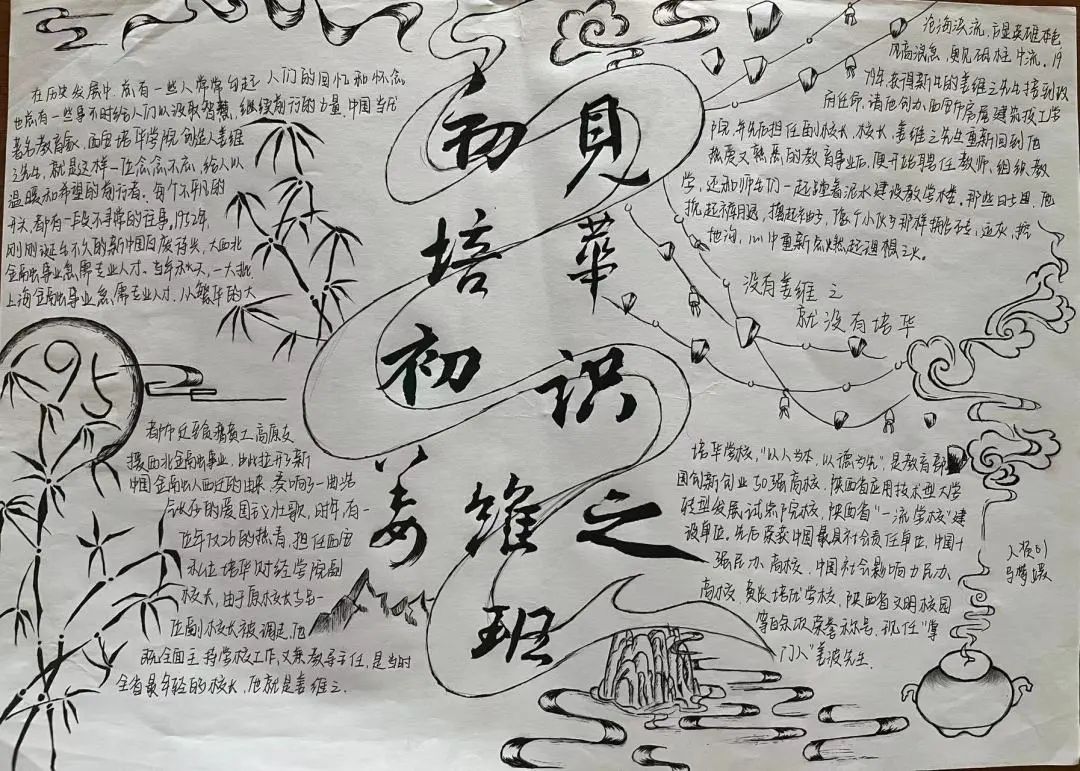 初見
培華
初识
姜维之
班
在历史发展中,总有一些人常常勾起人们的回忆和怀念
也总有一些事不时给人们以汲取智慧,继续前行的力量.中国当代
著名教育家,西安培华学院创始人姜维
之先生,就是这样一位念念不忘,给人以
温暖和希望的前行者.每个不凡的
开头,都有一段不寻常的往事,1952年,
刚刚诞生不久的新中国百废待兴,大西北
金融事业急需专业人才.一大批
上海金融事业急需专业人才,从繁华的大
95
都市迁
西北金融事业,由此拉开了新
中国金融人西迁的由来,奏响了一曲浩
气长存的爱国主义壮歌,时年,有一
位年仅26的热青,担任西安
私立培华财经学院副
校长,由于原校长与另一
位副校长被调走,他
既全面主持学校工作,又兼教导主任,是当时
全省最年轻的校长,他就是姜维之.
沧海洪流,方显英雄本色
风高浪急,更见砥柱中流.19
79年,获得新生的姜维之先生接到政
府任命,请他创办西安市房屋建筑技工学
院,并先后担任副校长,校长,姜维之先生重新回到他
热爱又熟悉的教育事业后,便开始聘任教师,组织教
学,还和师生们一起踏着泥水建设教学楼.那些日子里,他
挽起裤腿,撸起袖子,像个小伙子那样搬砖,运灰,挖
地沟,心中重新
没有姜维之
就没有培华
培华学校,"以人为本,以德为先",是教育部
国创新创业50强高校,陕西省应用技术型大学
转型发展试点院校,陕西省"一流学校"建
设单位,先后荣获中国最具社会责任单位,中国十
强民办高校,中国社会影响力民办
高校,黄炎培优学校,陕西省文明校园
等百余项荣誉称号,现任"掌
门人"姜波先生.